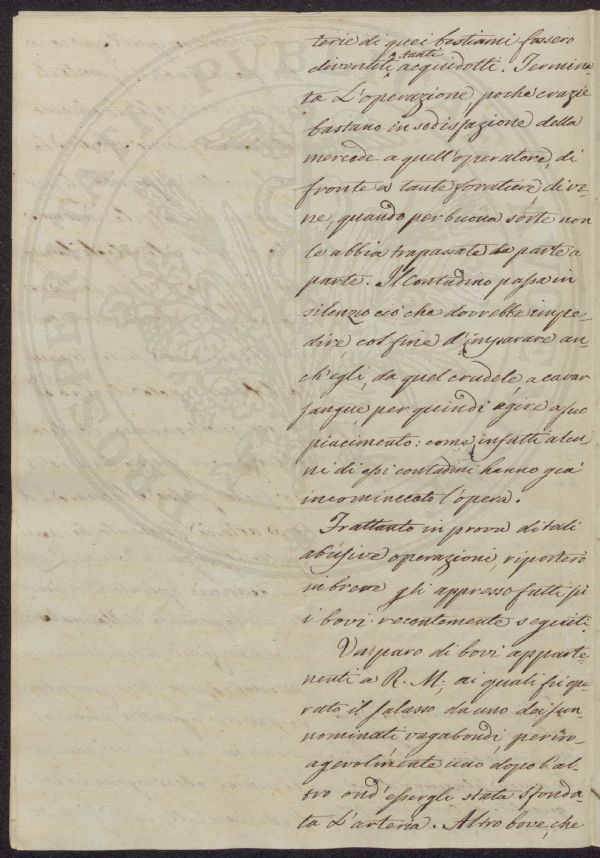 terie di quei bestiami fossero
diventiti tanti acquidotti. Termina-
ta l'operazione, poche crazie
bastano in sodisfazione della
mercede a quell'operatore, di
fronte a tante forature di ve-
ne, quando per buona sorte non
le abbia trapassate da parte a
parte. Il Contadino passa in
silenzio ciò che dovrebbe impe-
dire col fine d'imparare an-
ch'egli, da quel crudele, a cavar
sangue per quindi agire a suo
piacimento: come infatti alcu-
ni di essi contadini hanno già
incominciato l'opera.
Frattanto in prova di tali
abusive operazioni, riporterò
in breve gli appresso fatti su
i bovi recentemente seguiti.
Un paro di bovi apparte-
nenti a R. M., ai quali fù ope-
rato il salasso da uno dei sun-
nominati vagabondi, periro-
no agevolmente uno dopo l'al-
tro ond'essergli stata sfonda-
ta l'arteria. Altro bove, che
PROSPERITATI PUBLICAE